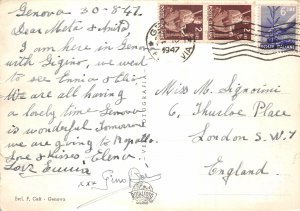 Genova 30-8-47.
Dear Meta & Anita,
I am here in Genova
with Gigino, we went
to see Ennia &
We are all having
a lovely time Genova
is wonderful Tomorrow
we are going to Rapallo.
Love & kisses. Elena
Love Emma
xxx Gino
Miss M. Signorini
6, Thurloe Place
London S.W.7
England.
1947
VIA
POSTE ITALIANE
Berl. F. Celt - Genova